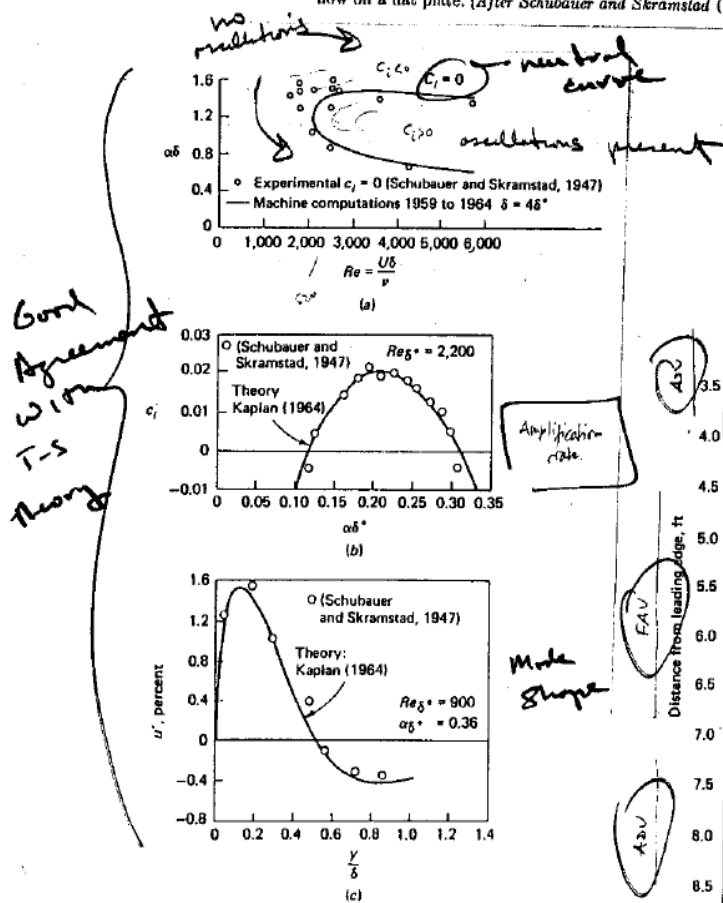 flow on a flat plate. (After Schubauer and Skramstad (
no
oscillations
cᵢ<0
cᵢ = 0
neutral
curve
cᵢ>0
oscillations present
1.6
1.2
αδ
0.8
0.4
0
○ Experimental cᵢ = 0 (Schubauer and Skramstad, 1947)
— Machine computations 1959 to 1964 δ = 4δ*
0 1,000 2,000 3,000 4,000 5,000 6,000
Re = Uδ/ν
(a)
Good
Agreement
with
T-S
theory
0.03
0.02
cᵢ
0.01
0
−0.01
○ (Schubauer and
Skramstad,
1947)
Reδ* = 2,200
Theory
Kaplan (1964)
0 0.05 0.10 0.15 0.20 0.25 0.30 0.35
αδ*
(b)
Amplification
rate
1.6
1.2
0.8
u′, percent
0.4
0
−0.4
−0.8
○ (Schubauer
and Skramstad, 1947)
Theory:
Kaplan (1964)
Reδ* = 900
αδ* = 0.36
0 0.2 0.4 0.6 0.8 1.0 1.2 1.4
y/δ
(c)
Mode
Shape
ADV
FAV
ADV
Distance from leading edge, ft
3.5
4.0
4.5
5.0
5.5
6.0
6.5
7.0
7.5
8.0
8.5